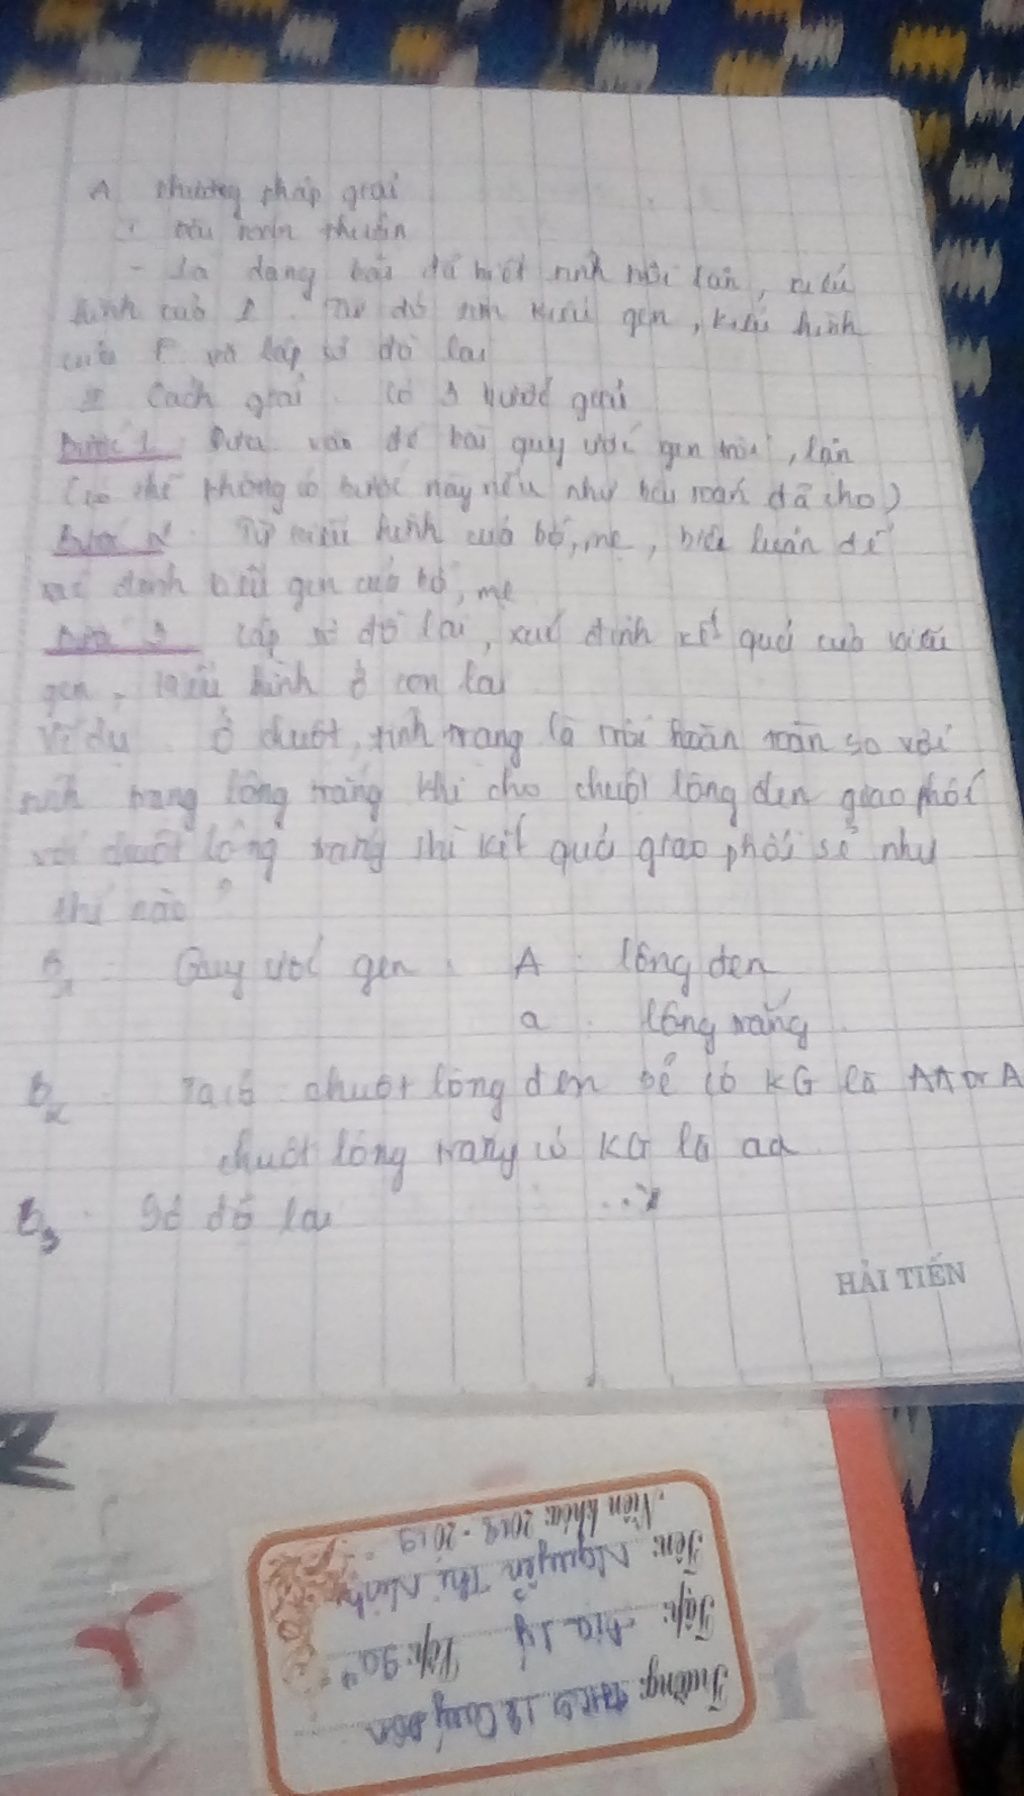 A phương pháp giải
1 Bài toán thuận
- Là dạng bài đã biết tính trội lặn, kiểu
hình của P. Từ đó tìm kiểu gen, kiểu hình
của F và lập sơ đồ lai
Cách giải. Có 3 bước giải
Bước 1 Dựa vào đề bài quy ước gen trội, lặn
(có thể không có bước này nếu như bài toán đã cho)
Bước 2 Từ kiểu hình của bố, mẹ, biện luận để
xác định kiểu gen của bố, mẹ
Bước 3 Lập sơ đồ lai, xác định kết quả của kiểu
gen, kiểu hình ở con lai
Ví dụ. Ở chuột, tính trạng là trội hoàn toàn so với
tính trạng lông trắng khi cho chuột lông đen giao phối
với chuột lông trắng thì kết quả giao phối sẽ như
thế nào?
B1 Quy ước gen: A: lông đen
a: lông trắng
B2 Ta có: chuột lông đen sẽ có KG là AA or A
chuột lông trắng có KG là aa
B3. Sơ đồ lai
HẢI TIẾN
Trường: THCS Lê Quý Đôn
Tập: Địa lý Lớp: 9a4
Tên: Nguyễn Thị
Niên khóa: 2018 - 2019